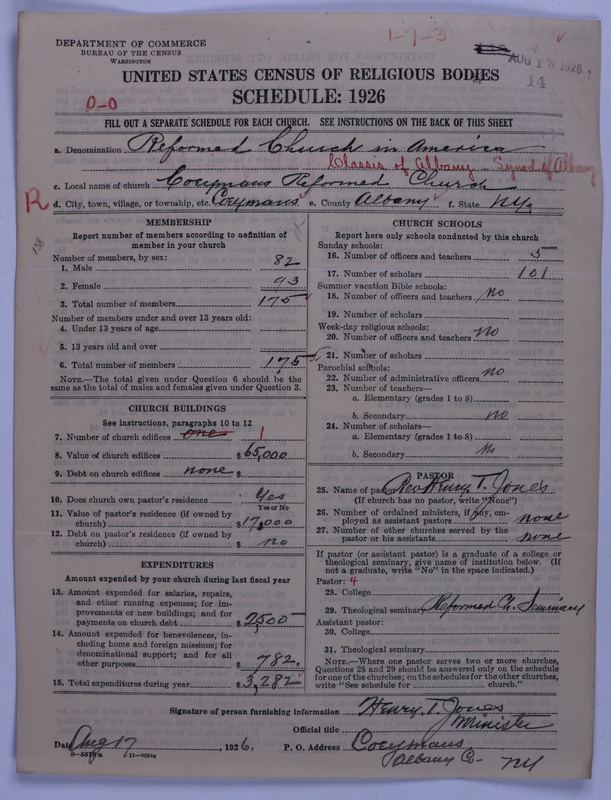 DEPARTMENT OF COMMERCE
BUREAU OF THE CENSUS
WASHINGTON
1-7-3
4
AUG 18 1926
14
UNITED STATES CENSUS OF RELIGIOUS BODIES
SCHEDULE: 1926
D-O
FILL OUT A SEPARATE SCHEDULE FOR EACH CHURCH. SEE INSTRUCTIONS ON THE BACK OF THIS SHEET
a. Denomination Reformed Church in America
Classis of Albany - Synod of Albany
c. Local name of church Coeymans Reformed Church
R
d. City, town, village, or township, etc. Coeymans e. County Albany f. State N.Y.
MEMBERSHIP
Report number of members according to definition of member in your church
Number of members, by sex:
1. Male 82
2. Female 93
3. Total number of members 175
Number of members under and over 13 years old:
4. Under 13 years of age
5. 13 years old and over
6. Total number of members 175
NOTE.—The total given under Question 6 should be the same as the total of males and females given under Question 3.
CHURCH BUILDINGS
See instructions, paragraphs 10 to 12
7. Number of church edifices one 1
8. Value of church edifices $ 65,000
9. Debt on church edifices none $
10. Does church own pastor's residence Yes
Yes or No
11. Value of pastor's residence (if owned by church) $ 17,000
12. Debt on pastor's residence (if owned by church) $ no
EXPENDITURES
Amount expended by your church during last fiscal year
13. Amount expended for salaries, repairs, and other running expenses; for improvements or new buildings; and for payments on church debt $ 2500
14. Amount expended for benevolences, including home and foreign missions; for denominational support; and for all other purposes $ 782.
15. Total expenditures during year $ 3,282
CHURCH SCHOOLS
Report here only schools conducted by this church
Sunday schools:
16. Number of officers and teachers 5
17. Number of scholars 101
Summer vacation Bible schools:
18. Number of officers and teachers no
19. Number of scholars
Week-day religious schools:
20. Number of officers and teachers no
21. Number of scholars
Parochial schools:
22. Number of administrative officers no
23. Number of teachers—
a. Elementary (grades 1 to 8)
b. Secondary no
24. Number of scholars—
a. Elementary (grades 1 to 8)
b. Secondary No
PASTOR
25. Name of pastor Rev Henry T. Jones
(If church has no pastor, write "None")
26. Number of ordained ministers, if any, employed as assistant pastors none
27. Number of other churches served by the pastor or his assistants none
If pastor (or assistant pastor) is a graduate of a college or theological seminary, give name of institution below. (If not a graduate, write "No" in the space indicated.)
Pastor: 4
28. College
29. Theological seminary Reformed Ch. Seminary
Assistant pastor:
30. College
31. Theological seminary
NOTE.—Where one pastor serves two or more churches, Questions 28 and 29 should be answered only on the schedule for one of the churches; on the schedules for the other churches, write "See schedule for church."
Signature of person furnishing information Henry T. Jones
Official title Minister
Date Aug 17, 1926. P. O. Address Coeymans
Albany Co. NY